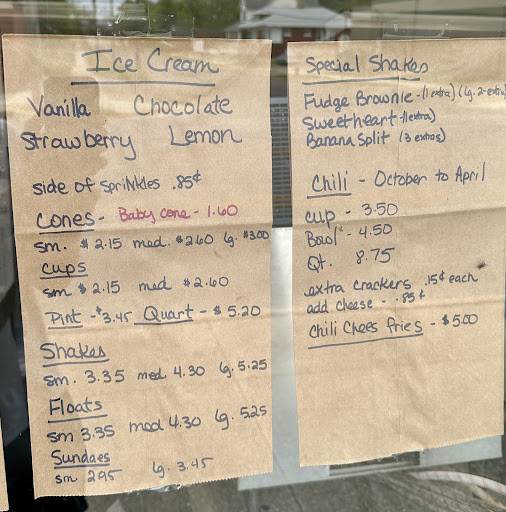 Ice Cream
Vanilla Chocolate
Strawberry Lemon
side of sprinkles .85¢
Cones - Baby cone - 1.60
sm. $2.15 med. $2.60 lg. $3.00
Cups
sm $2.15 med $2.60
Pint - $3.45 Quart - $5.20
Shakes
sm. 3.35 med 4.30 lg. 5.25
Floats
sm 3.35 med 4.30 lg. 5.25
Sundaes
sm 2.95 lg. 3.45
Special Shakes
Fudge Brownie - (1 extra) (lg. 2-extra)
Sweetheart - (1 extra)
Banana Split (3 extras)
Chili - October to April
cup - 3.50
Bowl - 4.50
Qt. 8.75
extra crackers .15¢ each
add cheese - .85¢
Chili Chees fries - $5.00